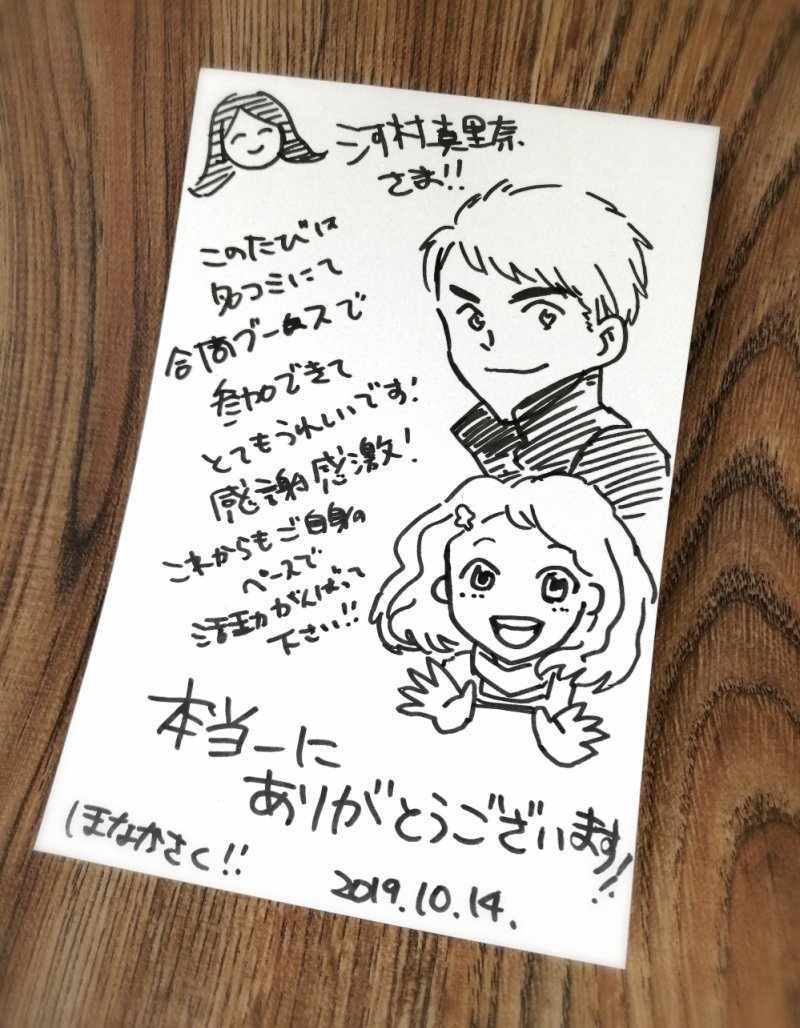 河村真里奈
さま!!
このたびは
名コミにて
合同ブースで
参加できて
とてもうれしいです!
感謝感激!
これからもご自身の
ペースで
活動がんばって
下さい!!
本当ーに
ありがとうございます!!
ほなかさく!!
2019.10.14.